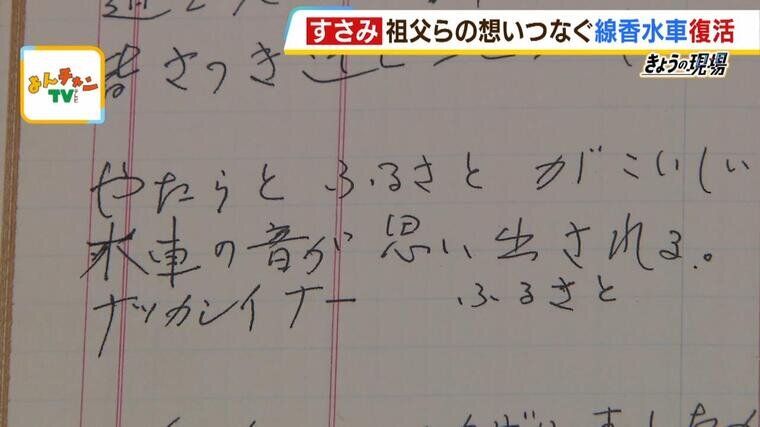 すさみ 祖父らの想いつなぐ線香水車復活
きょうの現場
よんチャンTV
テレビ
やたらと ふるさと がこいしい
水車の音が 思い出される。
ナツカシイナー ふるさと